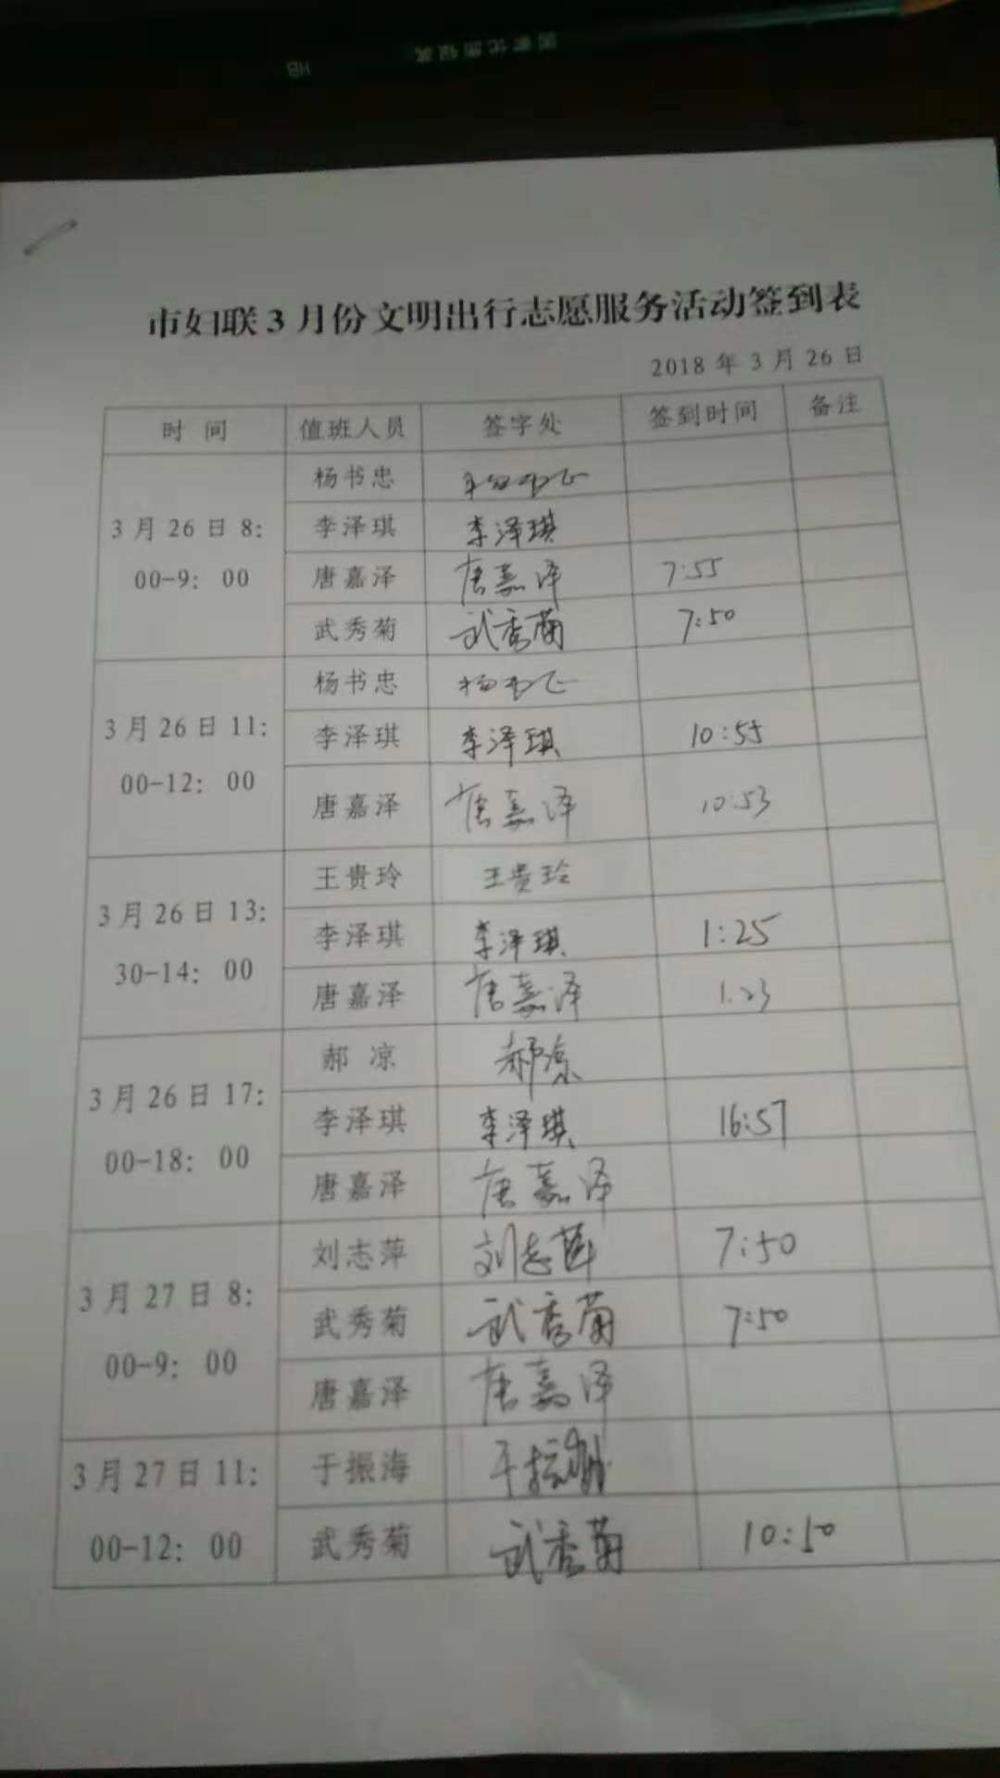 市妇联3月份文明出行志愿服务活动签到表
2018年3月26日
时 间 值班人员 签字处 签到时间 备注
3月26日8:00-9:00
杨书忠
李泽琪 李泽琪
唐嘉泽 唐嘉泽 7:55
武秀菊 武秀菊 7:50
3月26日11:00-12:00
杨书忠
李泽琪 李泽琪 10:55
唐嘉泽 唐嘉泽 10:53
3月26日13:30-14:00
王贵玲 王贵玲
李泽琪 李泽琪 1:25
唐嘉泽 唐嘉泽 1:23
3月26日17:00-18:00
郝 凉 郝凉
李泽琪 李泽琪 16:57
唐嘉泽 唐嘉泽
3月27日8:00-9:00
刘志萍 刘志萍 7:50
武秀菊 武秀菊 7:50
唐嘉泽 唐嘉泽
3月27日11:00-12:00
于振海
武秀菊 武秀菊 10:50